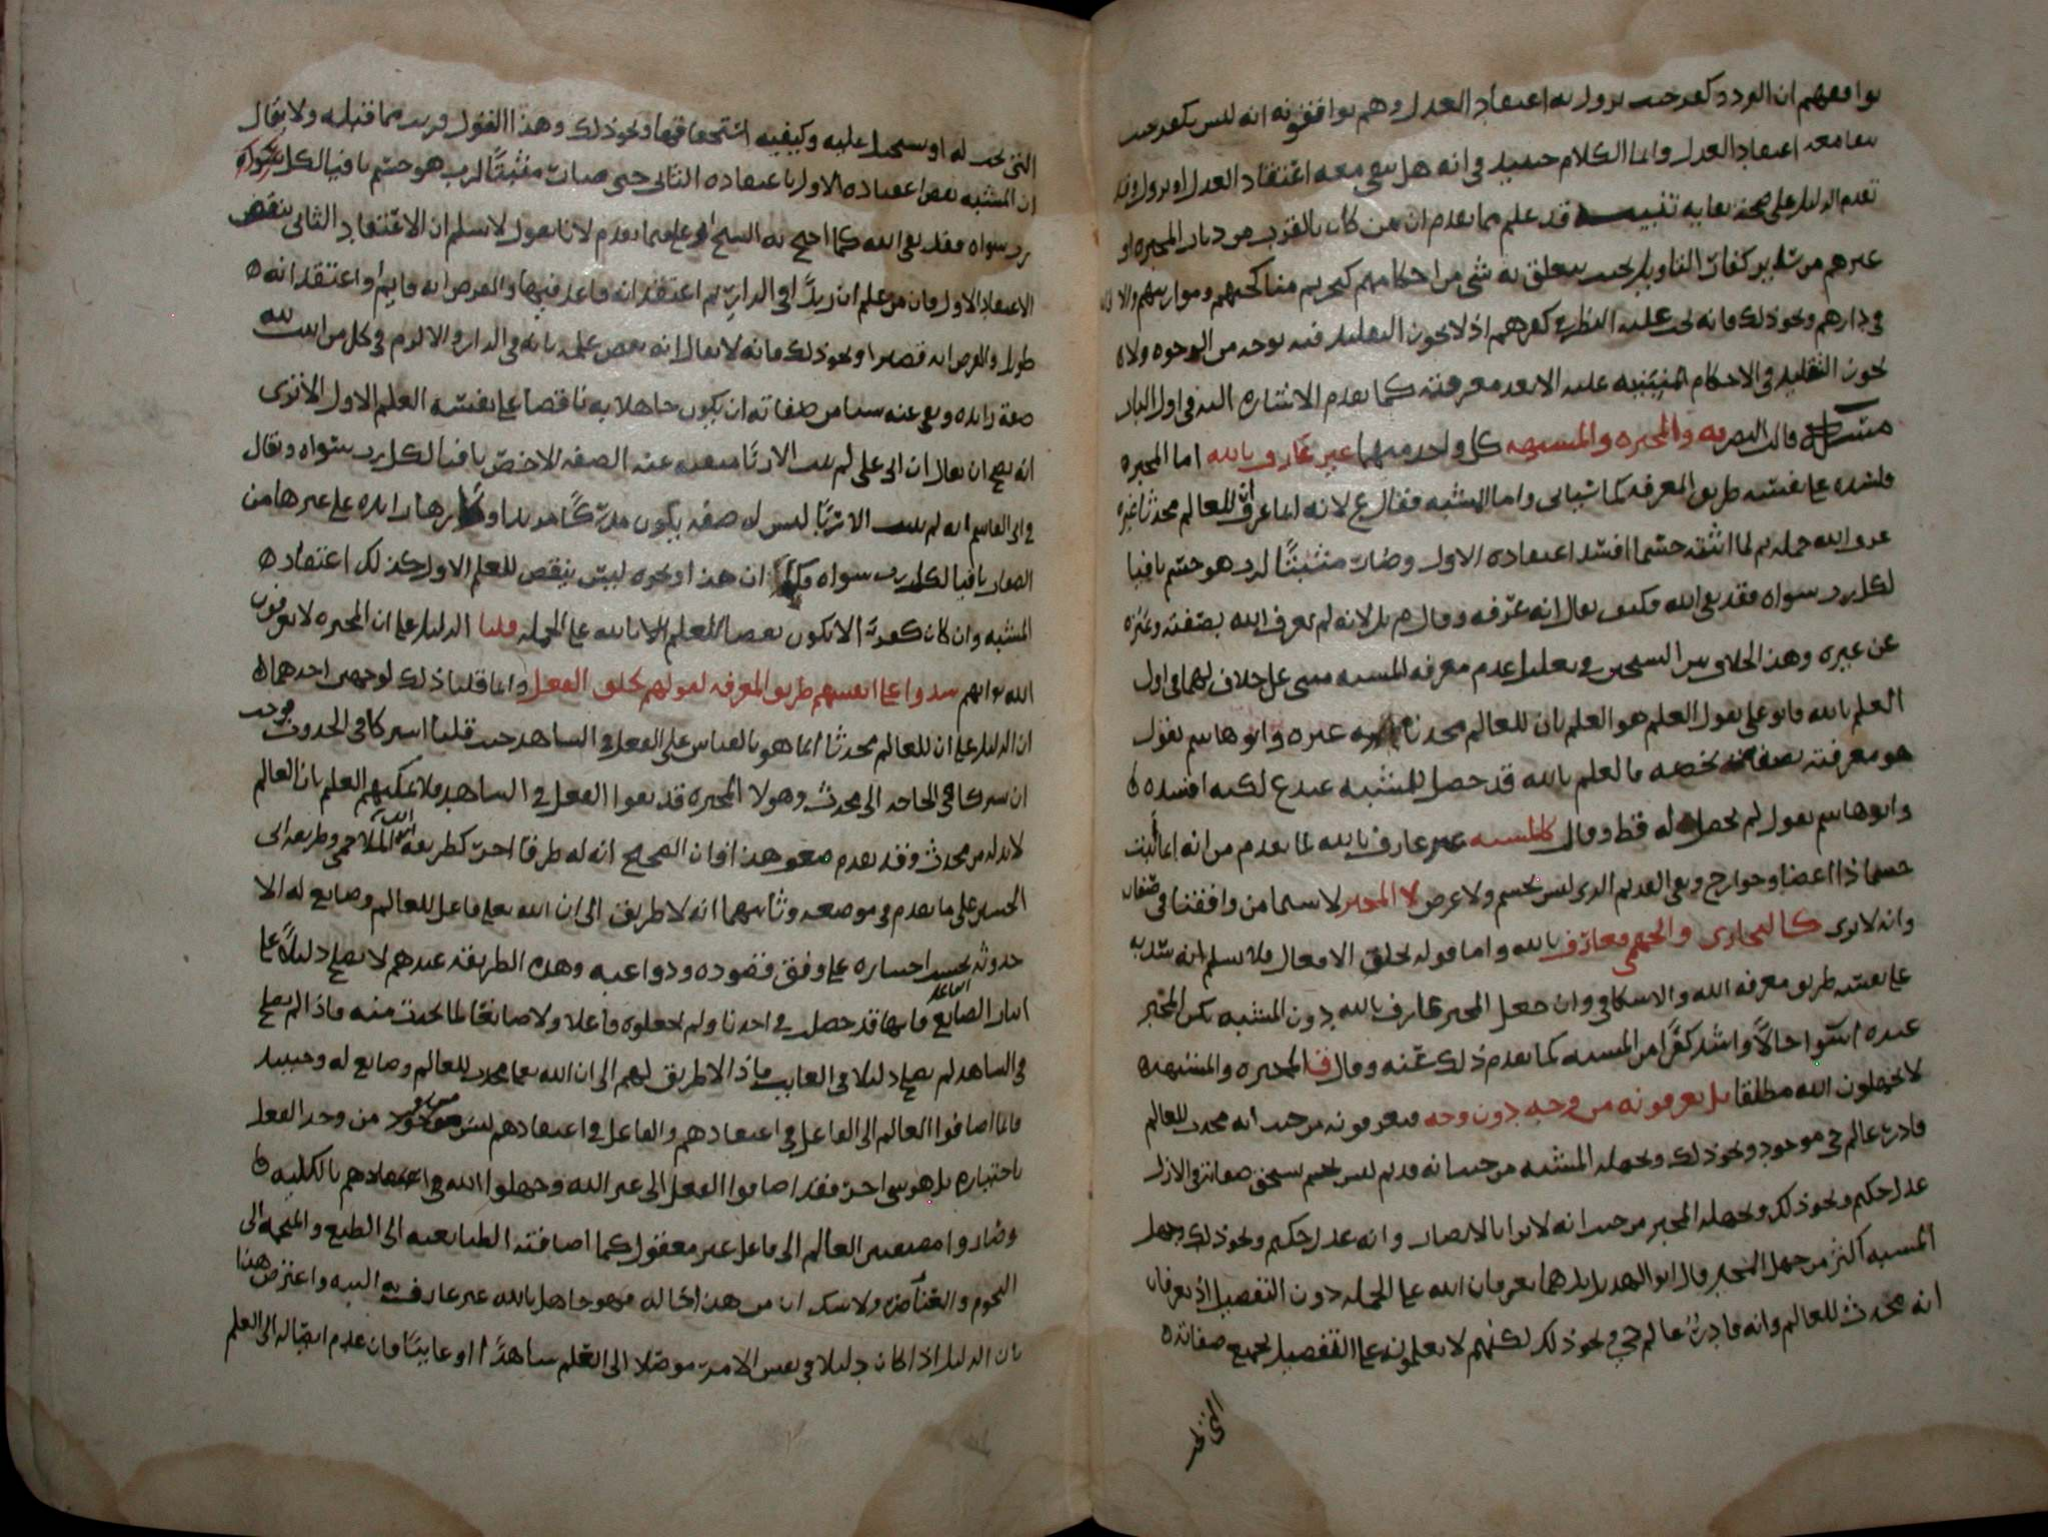 يوافقهم ان التردد كفر حيث يزول به اعتقاد العدل وهم يوافقونه انه ليس بكفر حيث
يبقا معه اعتقاد العدل وانما الكلام حينئذ في انه هل يبقى معه اعتقاد العدل او يزول وقد
تقدم الدليل على صحة بقايه تنبيه قد علم مما تقدم ان من كان بالقرب من ديار المجبره او
غيرهم من ساير كفار التاويل بحيث يتعلق به شي من احكامهم كتحريم مناكحتهم وموارثتهم والا
في دارهم ونحو ذلك فانه يجب عليه النظر في كفرهم اذ لا يجوز التقليد فيه بوجه من الوجوه ولا
يجوز التقليد في الاحكام المبنيه عليه الا بعد معرفته كما تقدم الاشاره اليه في اول الباب
قالت البصريه والمجبره والمشبهه كل واحد منهما غير عارف بالله اما المجبره
فلسده على نفسه طريق المعرفه كما سياتي واما المشبه فقال ع لانه انما عرف ان للعالم محدثا غيره
عرف الله جمله ثم لما اثبته جسما افسد اعتقاده الاول وصار مثبتا لرب هو جسم نافيا
لكل رب سواه فقد نفى الله فكيف يقال انه عرفه وقال م بل لانه لم يعرف الله بصفته وميزه
عن غيره وهذا الخلاف بين الشيخين في تعليل عدم معرفه المشبه مبني على خلاف لهما في اول
العلم بالله فابو علي يقول العلم هو العلم بان للعالم محدثا غيره وابو هاشم يقول
هو معرفته بصفه تخصه فالعلم بالله قد حصل للمشبه عند ع لكنه افسده
وابو هاشم يقول لم يحصل له قط وقال ك المشبه غير عارف بالله لما تقدم من انه انما اثبت
جسما ذا اعضا وجوارح ونفى القديم الذي ليس بجسم ولا عرض لا المجبر لا سيما من وافقنا في صفاته
وانه لا يرى كالنجاري والجهمي فعارف بالله واما قوله بخلق الافعال فلا نسلم انه سد به
على نفسه طريق معرفه الله والاسكافي وان جعل المجبر عارف بالله دون المشبه لكن المجبر
عنده اسوا حالا واشد كفرا من المشبه كما تقدم ذلك عنه وقال ق المجبره والمشبهه
لا يجهلون الله مطلقا بل يعرفونه من وجه دون وجه فيعرفونه من حيث انه محدث للعالم
قادر عالم حي موجود ونحو ذلك ويجهله المشبه من حيث انه قديم ليس بجسم يستحق صفاته في الازل
عدل حكيم ونحو ذلك ويجهله المجبر من حيث انه لا يرا بالابصار وانه عدل حكيم ونحو ذلك وجهل
المشبه اكثر من جهل المجبر قال ابو الهذيل بل هما يعرفان الله على الجمله دون التفصيل اذ يعرفان
انه محدث للعالم وانه قادر عالم حي ونحو ذلك لكنهم لا يعلمونه على التفصيل بجميع صفاته
التي تجب
التي تجب له او يستحيل عليه وكيفيه استحقاقها ونحو ذلك وهذا القول قريب مما قبله ولا يقال
ان المشبه نقض اعتقاده الاول باعتقاده الثاني حتى صار مثبتا لرب هو جسم نافيا لكل
رب سواه فقد نفى الله كما احتج به الشيخ ابو علي فيما تقدم لانا نقول لا نسلم ان الاعتقاد الثاني ينقض
الاعتقاد الاول فان من علم ان زيدا في الدار ثم اعتقد انه قاعد فيها والفرض انه قايم او اعتقد انه
طويل والفرض انه قصير او نحو ذلك فانه لا يقال انه نقض علمه بانه في الدار والا لزم في كل من اثبت لله
صفة زايده ونفى عنه شيا من صفاته ان يكون جاهلا به ناقضا على نفسه العلم الاول الا ترى
انه يصح ان يقال ان ابى علي لم يثبت الا ربا منفيه عنه الصفه الاخص نافيا لكل رب سواه ويقال
في ابى القاسم انه لم يثبت الا ربا ليس له صفه بكونه مدركا مريدا وكارها زايده على غيرها من
الصفات نافيا لكل رب سواه ان هذا ونحوه ليس ينقض للعلم الاول كذلك اعتقاد
المشبه وان كان كفرا الا يكون نقضا للعلم بالله على الجمله قلنا الدليل على ان المجبره لا يعرفون
الله تعا انهم سدوا على انفسهم طريق المعرفه لقولهم بخلق الفعل وانما قلنا ذلك لوجهين احدهما
ان الدليل على ان للعالم محدثا انما هو بالقياس على الفعل في الشاهد حيث قلنا اشتركا في الحدوث فوجب
ان يشتركا في الحاجه الى محدث وهولا المجبره قد نفوا الفعل في الشاهد فلا يمكنهم العلم بان العالم
لا بد له من محدث وقد تقدم هذا وان الصحيح ان له طرقا اخر كطريقه ابن الملاحمي وطريقه ابى
الحسين على ما تقدم في موضعه وثانيهما انه لا طريق الى ان الله تعلى فاعل للعالم وصانع له الا
حدوثه بحسب اختياره على وفق قصوده ودواعيه وهذه الطريقه عندهم لا تصلح دليلا على
اثبات الصانع فانها قد حصلت في احدنا ولم يجعلوه فاعلا ولا صانعا لما يحدث منه فاذا لم يصلح
في الشاهد لم يصلح دليلا في الغايب فاذا لا طريق لهم الى ان الله تعا محدث للعالم وصانع له وحينئذ
فانما اضافوا العالم الى الفاعل في اعتقادهم والفاعل في اعتقادهم ليس هو من وجد الفعل
باختياره بل هو شي اخر فقد اضافوا الفعل الى غير الله وجهلوا الله في اعتقادهم بالكليه
وصاروا مضيفين العالم الى فاعل غير معقول كما اضافته الطبايعيه الى الطبع والمنجمه الى
النجوم والعناصر ولا شك ان من هذا حاله فهو جاهل بالله غير عارف به البته واعترض هذا
بان الدليل اذا كان دليلا في نفس الامر موصلا الى العلم شاهدا او غايبا فان عدم ايصاله الى العلم